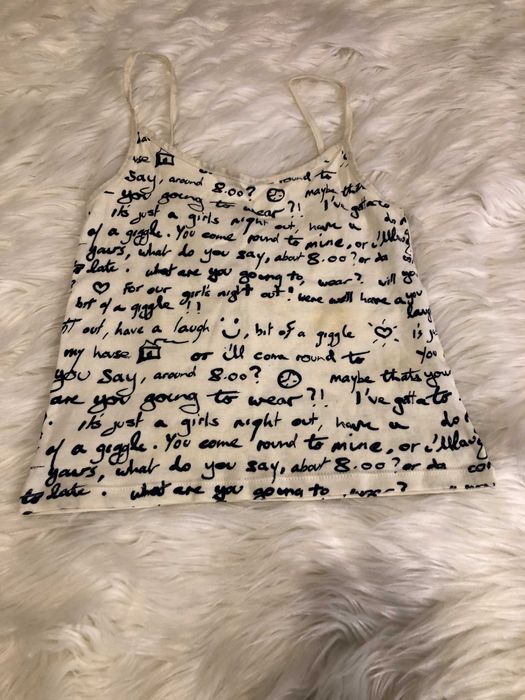 use
say, around 8.00? round to
- you going to wear?! maybe thats
its just a girls night out, have a do
of a giggle. You come round to mine, or i'll
yours, what do you say, about 8.00? or do
to late. what are you going to wear? will you
For our girls night out! were well have a
bit of a giggle !!
out, have a laugh bit of a giggle is
my house or i'll come round to You
You say, around 8.00? maybe thats you
are you going to wear?! I've gotta to
its just a girls night out, have a do
of a giggle. You come round to mine, or i'll
yours, what do you say, about 8.00? or do
to late. what are you going to wear?